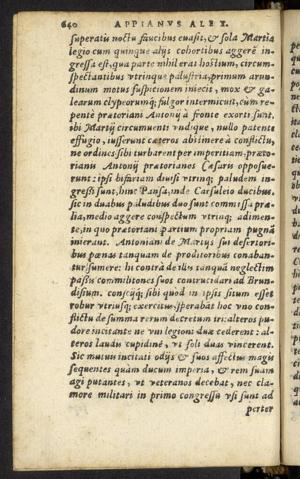 640 APPIANVS ALEX.
superatis noctu faucibus euasit, & sola Martia
legio cum quinque alijs cohortibus aggerē in-
gressa est, qua parte nihil erat hostium, circum-
spectantibus vtrinque palustria, primum arun-
dinum motus suspitionem iniecit, mox & ga-
learum clypeorumq; fulgor intermicuit, cùm re-
pentè prætoriani Antonij à fronte exorti sunt.
ibi Martij circumuenti vndique, nullo patente
effugio, iusserunt cæteros abstinere à conflictu,
ne ordines sibi turbarent per imperitiam. præto-
rianis Antonij prætorianos Cæsaris opposue-
runt: ipsi bifariam diuisi vtrinq; paludem in-
gressi sunt, hinc Pansa, inde Carsuleio ducibus.
sic in duabus paludibus duo sunt commissa præ-
lia, medio aggere conspectum vtrinq; adimen-
te, in quo prætoriani partium propriam pugnā
inierant. Antoniani de Martijs vt desertori-
bus pœnas tanquam de proditoribus conaban-
tur sumere: hi contrà de illis tanquā neglectim
passis commilitones suos contrucidari ad Brun-
disium. conscijq; sibi quod in ipsis situm esset
robur vtriusq; exercitus, sperabāt hoc vno con-
flictu de summa rerum decretum iri: alteros pu-
dore incitante ne vni legioni duæ cederent: al-
teros laudis cupidine, vt soli duas vincerent.
Sic mutuis incitati odijs & suos affectus magis
sequentes quàm ducum imperia, & rem suam
agi putantes, vt veteranos decebat, nec cla-
more militari in primo congressu vsi sunt ad
perter